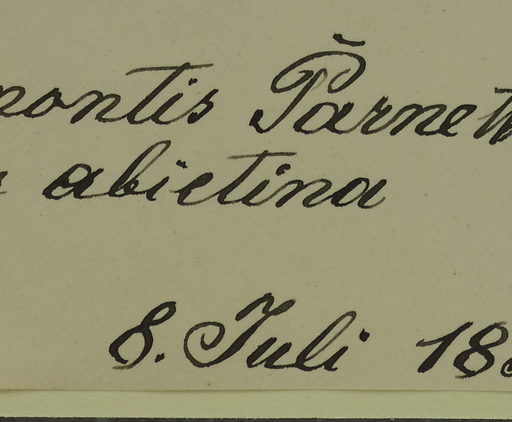 montis Parnett
abietina
8. Juli 18